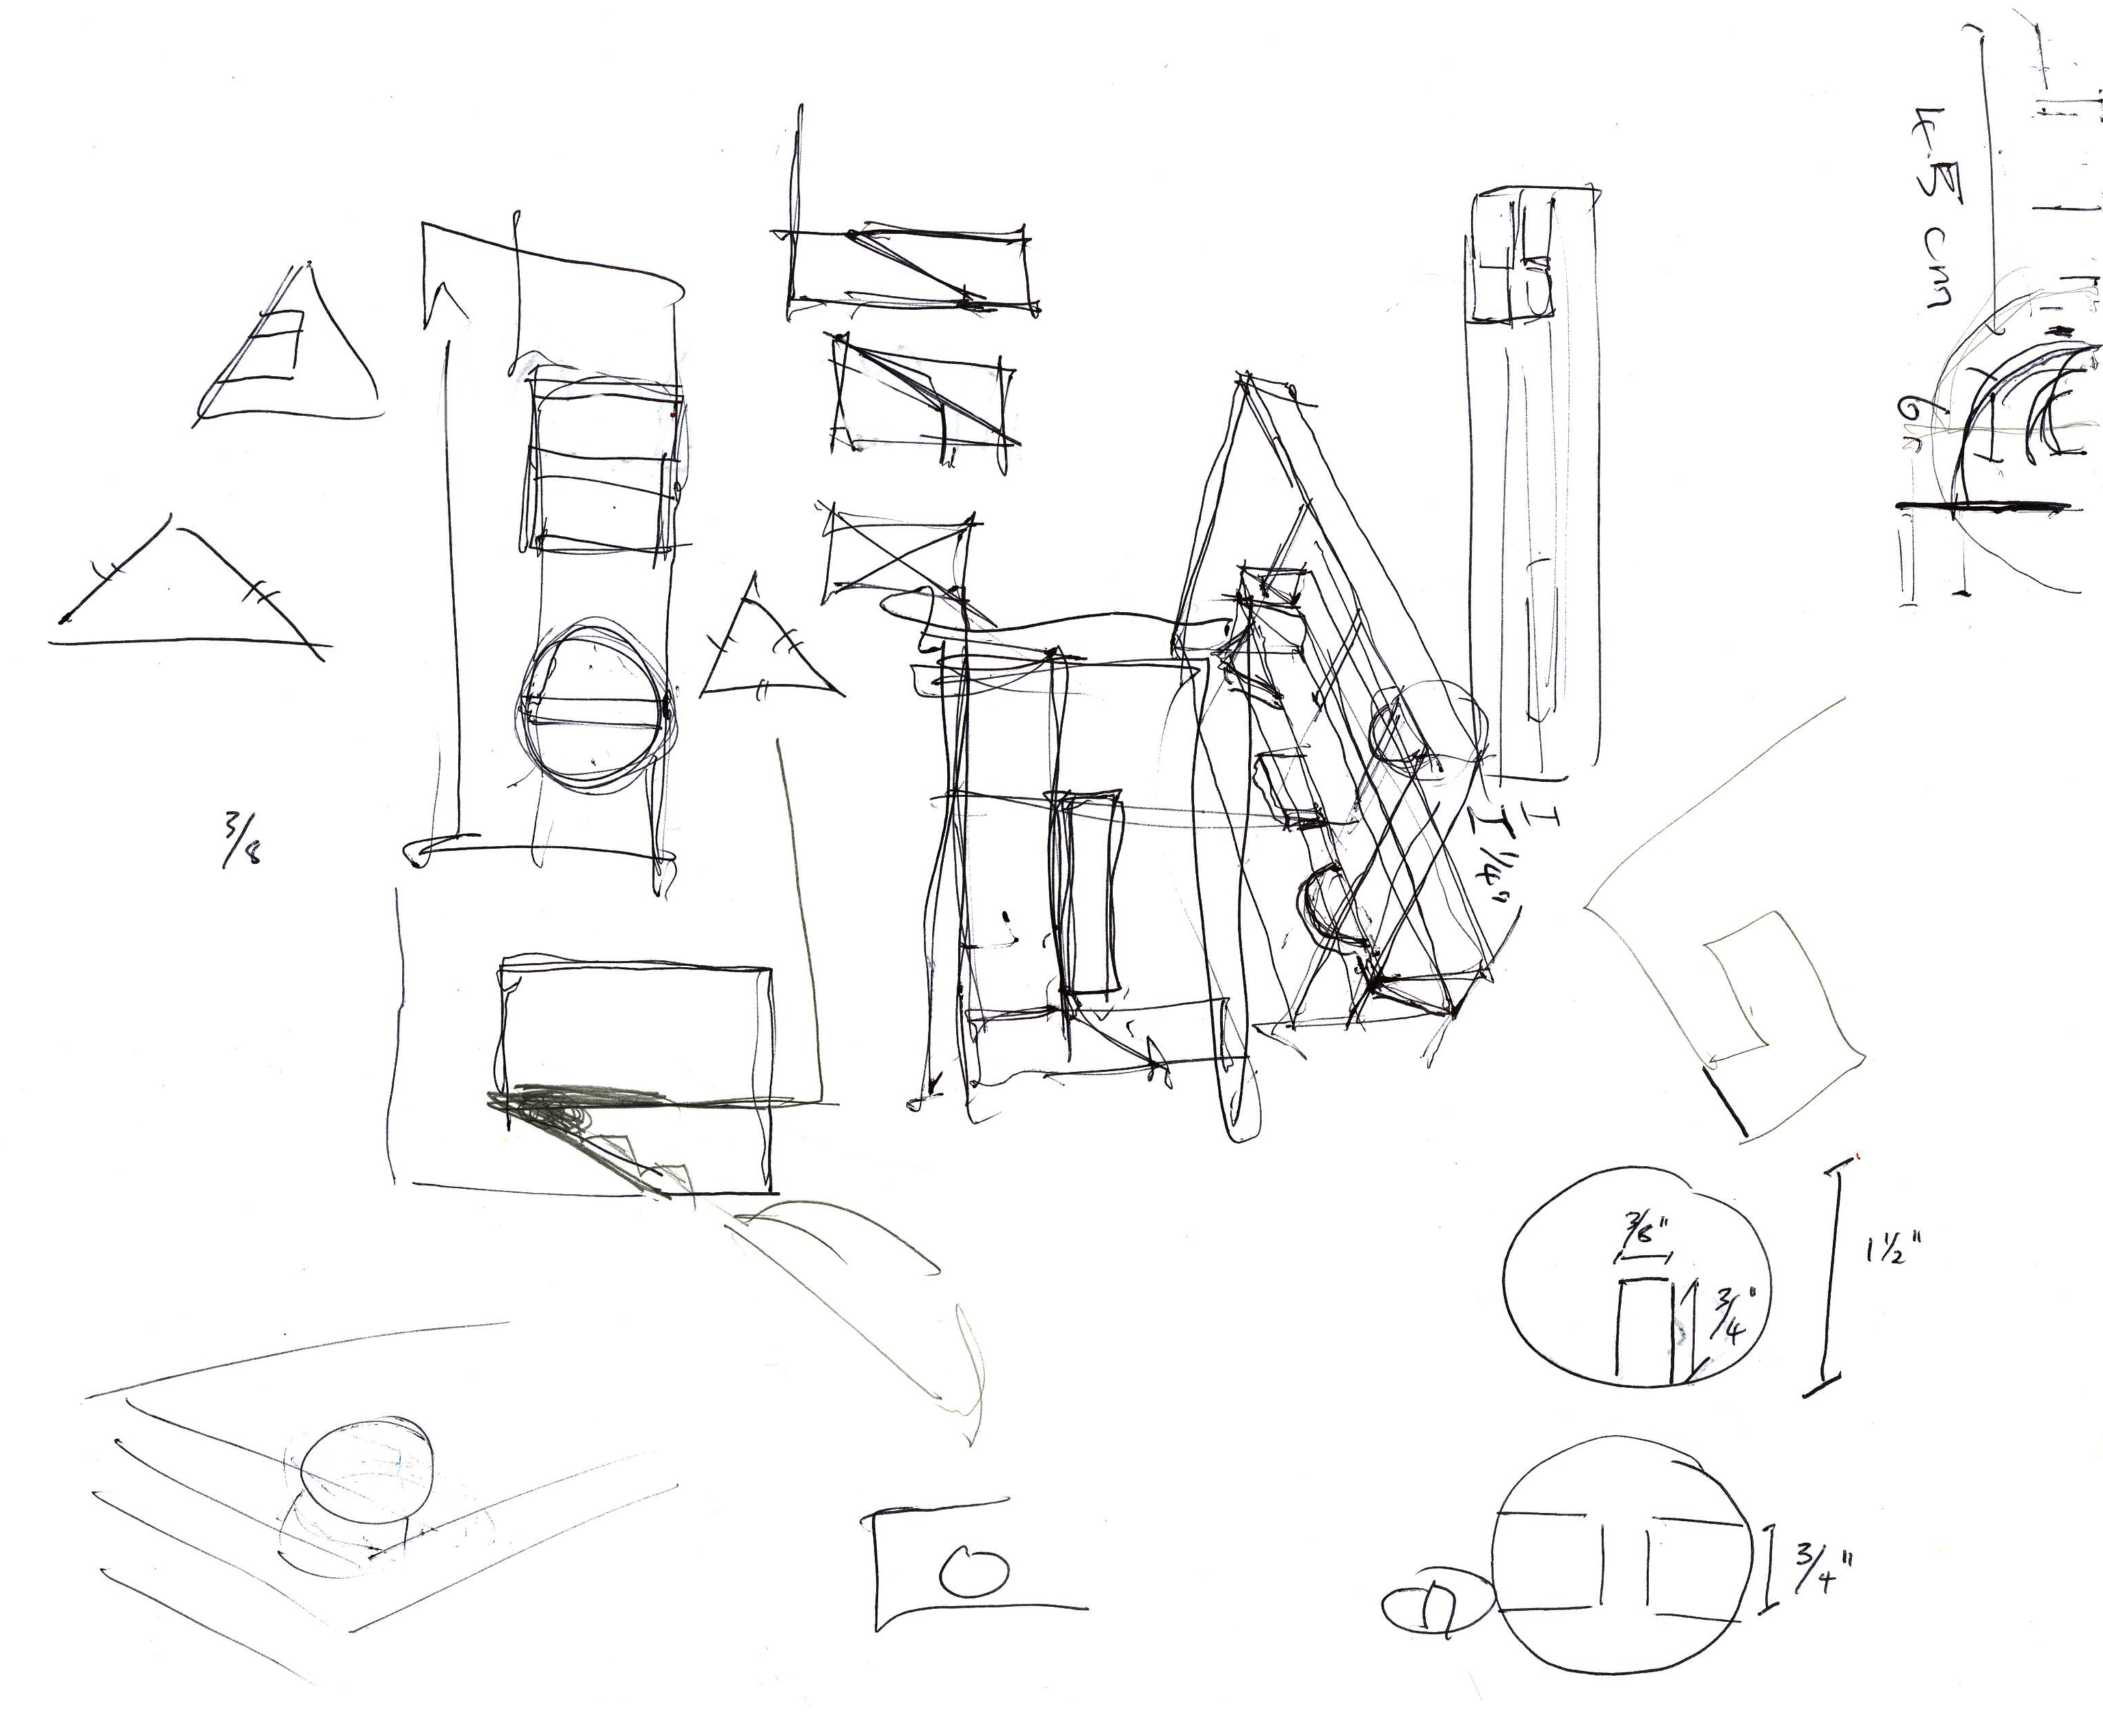 4.5 cm
3/8
1/4"
3/8"
3/4"
1 1/2"
3/4"